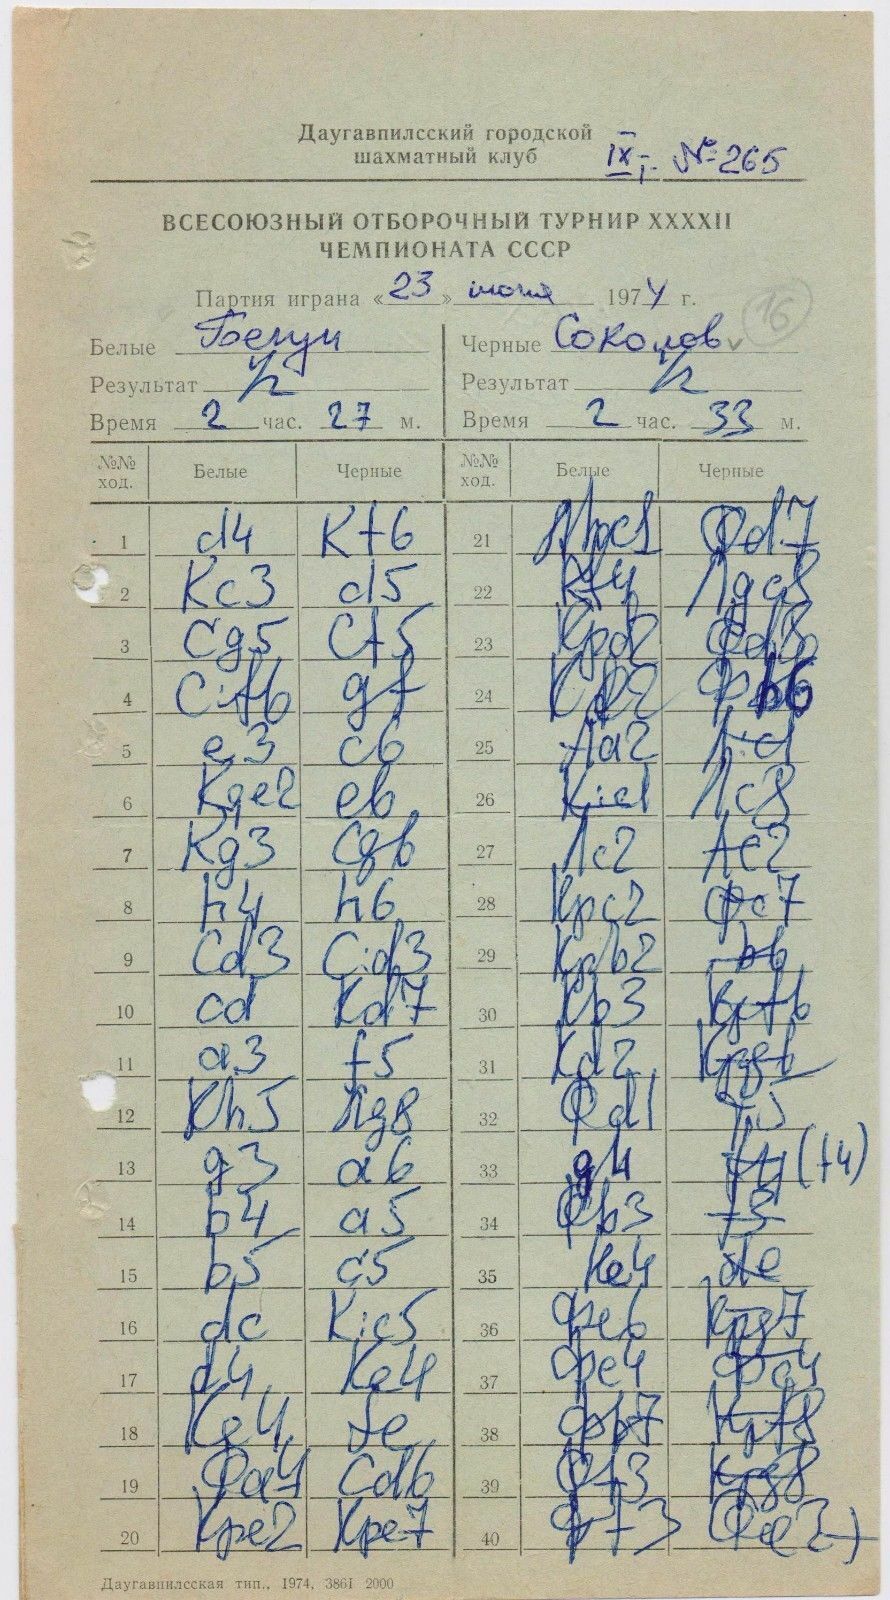 Даугавпилсский городской
шахматный клуб
IX т. № 265
ВСЕСОЮЗНЫЙ ОТБОРОЧНЫЙ ТУРНИР XXXXII
ЧЕМПИОНАТА СССР
Партия играна «23» июня 1974 г.
16
Белые Черные Соколов
Результат 1/2 Результат 1/2
Время 2 час. 27 м. Время 2 час. 33 м.
№№ ход. Белые Черные №№ ход. Белые Черные
1 d4 Kf6 21 Фd7
2 Kc3 d5 22 Kf4 Лgc8
3 Cg5 Cf5 23 Kpd2 Фd8
4 C:f6 gf 24 Фb6
5 e3 c6 25 Лa2
6 Kge2 e6 26 K:c1 Лc8
7 Kg3 Cg6 27 Лc2
8 h4 h6 28 Kpc2 Фc7
9 Cd3 C:d3 29 Kpb2 b6
10 cd Kd7 30 Kb3 Kpf6
11 a3 f5 31 Kd2 Kpg6
12 Kh5 Лg8 32 Фd1
13 g3 a6 33 g4 (f4)
14 b4 a5 34 Фb3 f5
15 b5 c5 35 Ke4 de
16 dc K:c5 36 Фe6 Kpg7
17 d4 Ke4 37 Фe4 Фc4
18 Ke4 de 38 Фb7 Kpf8
19 Фa4 Cd6 39 Фf3 Kpg8
20 Kpe2 Kpe7 40 Фf3
Даугавпилсская тип., 1974, 3861 2000